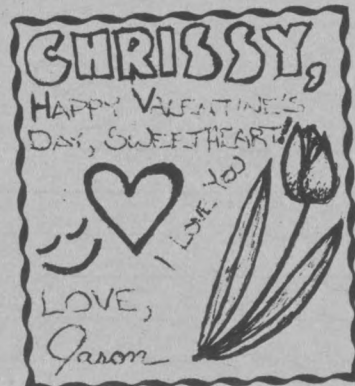 CHRISSY,
HAPPY VALENTINE'S
DAY, SWEETHEART!
I LOVE YOU
LOVE,
Jason